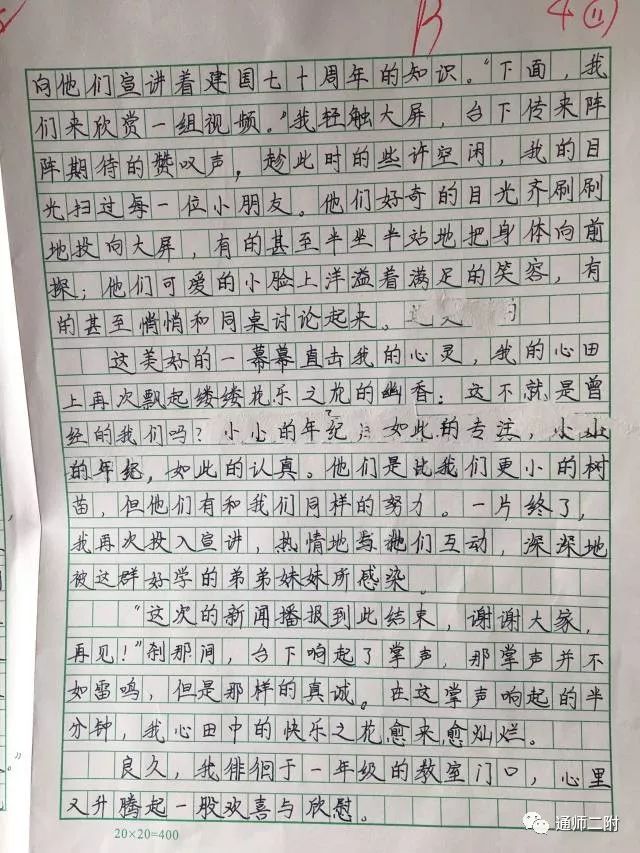 B 4 11
向他们宣讲着建国七十周年的知识。“下面，我
们来欣赏一组视频。”我轻触大屏，台下传来阵
阵期待的赞叹声，趁此时的些许空闲，我的目
光扫过每一位小朋友。他们好奇的目光齐刷刷
地投向大屏，有的甚至半坐半站地把身体向前
探；他们可爱的小脸上洋溢着满足的笑容，有
的甚至悄悄和同桌讨论起来。
这美好的一幕幕直击我的心灵，我的心田
上再次飘起缕缕花乐之龙的幽香：这不就是曾
经的我们吗？小小的年纪，如此的专注，小小
的年纪，如此的认真。他们是比我们更小的树
苗，但他们有和我们同样的努力。一片终了，
我再次投入宣讲，热情地与他们互动，深深地
被这群好学的弟弟妹妹所感染。
“这次的新闻播报到此结束，谢谢大家，
再见！”刹那间，台下响起了掌声，那掌声并不
如雷鸣，但是那样的真诚。在这掌声响起的半
分钟，我心田中的快乐之花愈来愈灿烂。
良久，我徘徊于一年级的教室门口，心里
又升腾起一股欢喜与欣慰。
20×20=400
通师二附